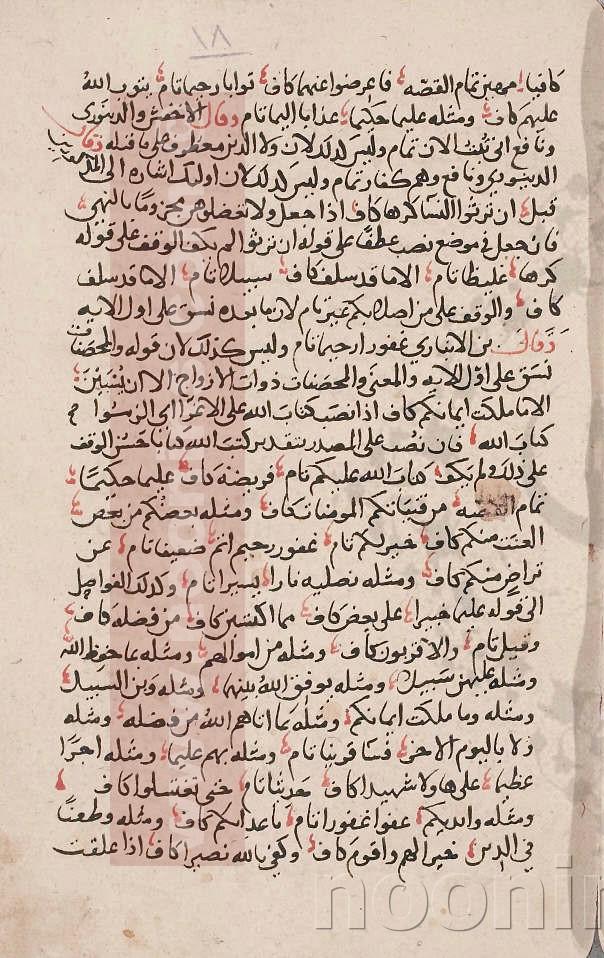 ١٨
كافيا مهين تمام القصه فاعرضوا عنهما كاف توابا رحيما تام يتوب الله
عليهم كاف ومثله عليما حكيما عذابا اليما تام وقال الاخفش والدينوري
ونافع اني تبت الان تمام وليس كذلك لان ولا الذين معطوف على ما قبله وقال
الدينوري ونافع وهم كفار تمام وليس كذلك لان اولئك اشاره الى المذكورين
قبل ان ترثوا النسا كرها كاف اذا جعل ولا تعضلوهن مجزوما بالنهي
فان جعل في موضع نصب عطفا على قوله ان ترثوا لم يكف الوقف على قوله
كرها غليظا تام الا ما قد سلف كاف سبيلا تام الا ما قد سلف
كاف والوقف على من اصلابكم غير تام لان ما بعده نسق على اول الايه
وقال بن الانباري غفورا رحيما تام وليس كذلك لان قوله والمحصنات
نسق على اول الايه والمعنى والمحصنات ذوات الازواج الا ان يسبين
الا ما ملكت ايمانكم كاف اذا نصب كتاب الله على الاغرا اي الزموا
كتاب الله فان نصب على المصدر بتقدير كتب الله كتابا حسن الوقف
على ذلك ولم يكف كتاب الله عليكم تام فريضة كاف عليما حكيما
تمام القصه من فتياتكم المومنات كاف ومثله بعضكم من بعض
العنت منكم كاف خير لكم تام غفور رحيم اتم ضعيفا تام عن
تراض منكم كاف ومثله نصليه نارا يسيرا تام وكذلك الفواصل
الى قوله عليما خبيرا على بعض كاف مما اكتسبن كاف من فضله كاف
وقيل تام والاقربون كاف ومثله من اموالهم ومثله بما حفظ الله
ومثله عليهن سبيلا ومثله يوفق الله بينهما ومثله وبن السبيل
ومثله وما ملكت ايمانكم ومثله بما اتاهم الله من فضله ومثله
ولا باليوم الاخر فسا قرينا تام ومثله بهم عليما ومثله اجرا
عظيما على هاولا شهيدا كاف حديثا تام حتى تغتسلوا كاف
ومثله وايديكم عفوا غفورا تام باعدائكم كاف ومثله وطعنا
في الدين خيرا لهم واقوم كاف وكفى بالله نصيرا كاف اذا علقت
noonin